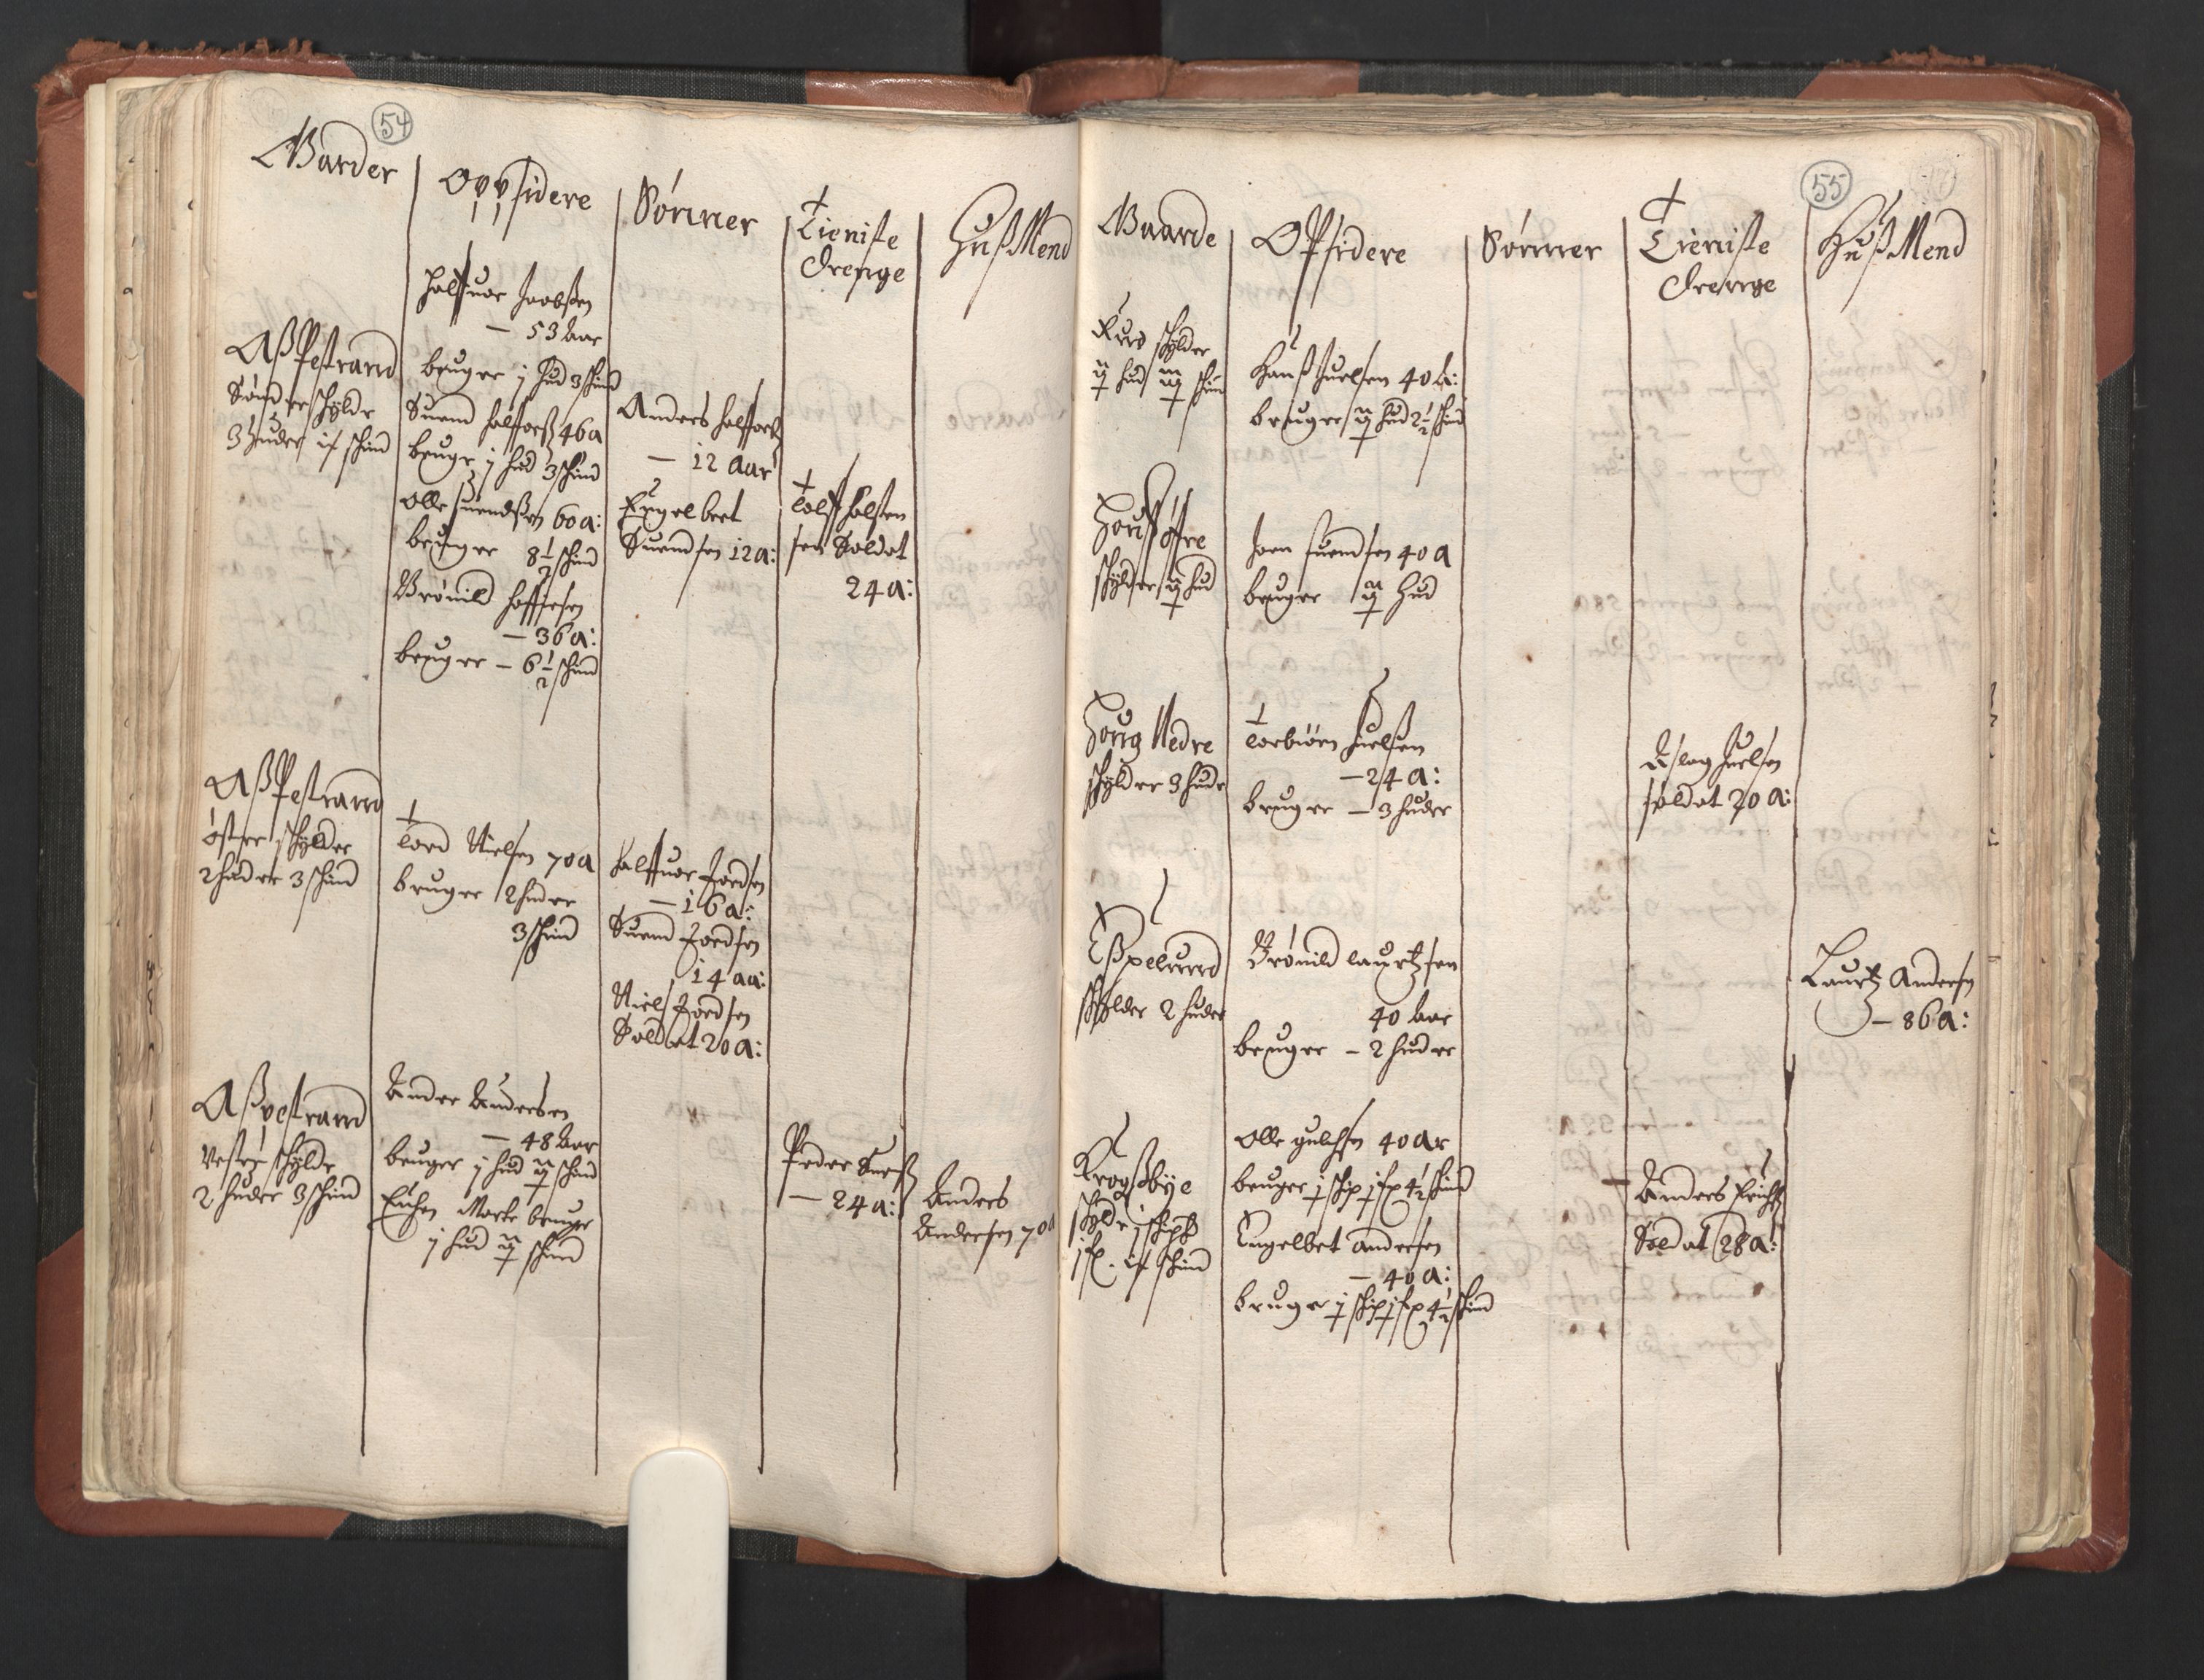 54
Gaarder
Opsidere
Sønner
Tieniste
Drenge
HusMend
Aspestrand
Sønder schylder
3 huder if schind
Halfuor Jacobsen
— 53 Aar
bruger j hud 3 schind
Suend Halfuorß 46 a
bruger j hud 3 schind
Olle Suendsen 60 a:
bruger 8½ schind
Brønild
— 36 a:
bruger — 6½ schind
Anders Halfuorß
— 12 Aar
Engelbret
Suendsen 12 a:
Soldat
24 a:
Aspestrand
øster schylder
2 huder 3 schind
Tord Nielsen 70 a
bruger 2 huder
3 schind
Halfuor Tordsen
— 16 a:
Suend Tordsen
14 aa:
Niels Tordsen
Soldat 20 a:
Aspestrand
Vester schylder
2 huder 3 schind
Ander Andersen
— 48 Aar
bruger j hud schind
Enchen Marte bruger
j hud schind
Peder
— 24 a:
Anders
Andersen 70 a
55
Gaarde
Opsidere
Sønner
Tieniste
Drenge
HusMend
schylder
hud schind
Hans Juelsen 40 a:
bruger hud 2½ schind
Houg øffre
schylder hud
Joen Suendsen 40 a
bruger Hud
Houg Nedre
schylder 3 huder
Torbiørn Juelsen
— 24 a:
bruger — 3 huder
Aslag Juelsen
soldat 20 a:
Espelund
schylder 2 huder
Brønild Lauritzsen
40 Aar
bruger — 2 huder
Lauritz Andersen
— 86 a:
Krogsbye
schylder j schip
j schind
Olle 40 Ar
bruger j schip 4½ schind
Engelbret Andersen
— 40 a:
bruger j schip 4½ schind
Anders
Soldat 28 a: